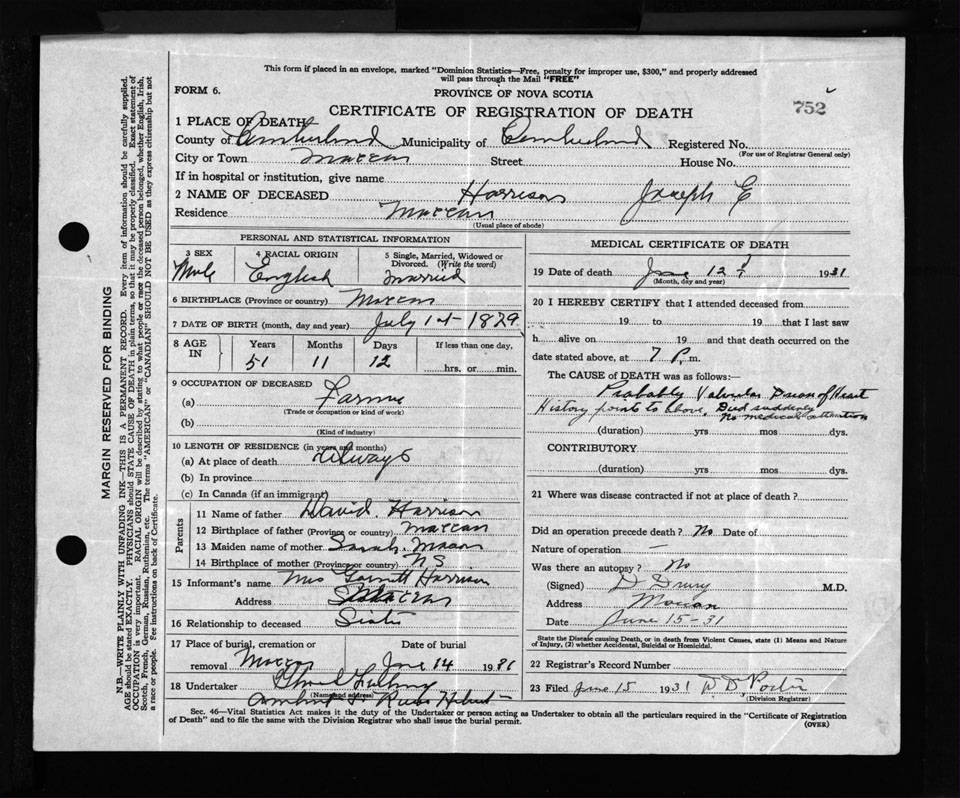 This form if placed in an envelope, marked "Dominion Statistics—Free, penalty for improper use, $300," and properly addressed
will pass through the Mail "FREE"
FORM 6.
PROVINCE OF NOVA SCOTIA
752
CERTIFICATE OF REGISTRATION OF DEATH
1 PLACE OF DEATH
County of Cumberland Municipality of Cumberland Registered No.
(For use of Registrar General only)
City or Town Maccan Street House No.
If in hospital or institution, give name
2 NAME OF DECEASED Harrison Joseph E
Residence Maccan
(Usual place of abode)
PERSONAL AND STATISTICAL INFORMATION
3 SEX 4 RACIAL ORIGIN 5 Single, Married, Widowed or
Divorced. (Write the word)
Male English married
6 BIRTHPLACE (Province or country) Maccan
7 DATE OF BIRTH (month, day and year) July 1st 1829
8 AGE IN Years Months Days If less than one day,
51 11 12 hrs. or min.
9 OCCUPATION OF DECEASED
(a) Farmer
(Trade or occupation or kind of work)
(b)
(Kind of industry)
10 LENGTH OF RESIDENCE (in years and months)
(a) At place of death always
(b) In province
(c) In Canada (if an immigrant)
Parents
11 Name of father David Harrison
12 Birthplace of father (Province or country) Maccan
13 Maiden name of mother Sarah
14 Birthplace of mother (Province or country) N S
15 Informant's name Mrs Garnett Harrison
Address Maccan
16 Relationship to deceased Sister
17 Place of burial, cremation or Date of burial
removal Maccan June 14 1931
18 Undertaker
(Name and address)
Amherst
MEDICAL CERTIFICATE OF DEATH
19 Date of death June 12 1931
(Month, day and year)
20 I HEREBY CERTIFY that I attended deceased from
19 to 19 that I last saw
h alive on 19 and that death occurred on the
date stated above, at 7 P.m.
The CAUSE of DEATH was as follows:—
Probably Valvular Disease of Heart
History points to above. Died suddenly
No medical attention
(duration) yrs mos dys.
CONTRIBUTORY
(duration) yrs mos dys.
21 Where was disease contracted if not at place of death?
Did an operation precede death? No Date of
Nature of operation —
Was there an autopsy? No
(Signed) D Drury M.D.
Address Maccan
Date June 15-31
State the Disease causing Death, or in death from Violent Causes, state (1) Means and Nature
of Injury, (2) whether Accidental, Suicidal or Homicidal.
22 Registrar's Record Number
23 Filed June 15 1931 Porter
(Division Registrar)
Sec. 46—Vital Statistics Act makes it the duty of the Undertaker or person acting as Undertaker to obtain all the particulars required in the "Certificate of Registration
of Death" and to file the same with the Division Registrar who shall issue the burial permit.
(OVER)
MARGIN RESERVED FOR BINDING
N.B.—WRITE PLAINLY WITH UNFADING INK—THIS IS A PERMANENT RECORD. Every item of information should be carefully supplied.
AGE should be stated EXACTLY. PHYSICIANS should STATE CAUSE OF DEATH in plain terms, so that it may be properly classified. Exact statement of
OCCUPATION is very important. RACIAL ORIGIN will be described by stating to what people or race the deceased person belonged, whether English, Irish,
Scotch, French, German, Russian, Ruthenian, etc. The terms "AMERICAN" or "CANADIAN" SHOULD NOT BE USED as they express citizenship but not
a race or people. See instructions on back of Certificate.